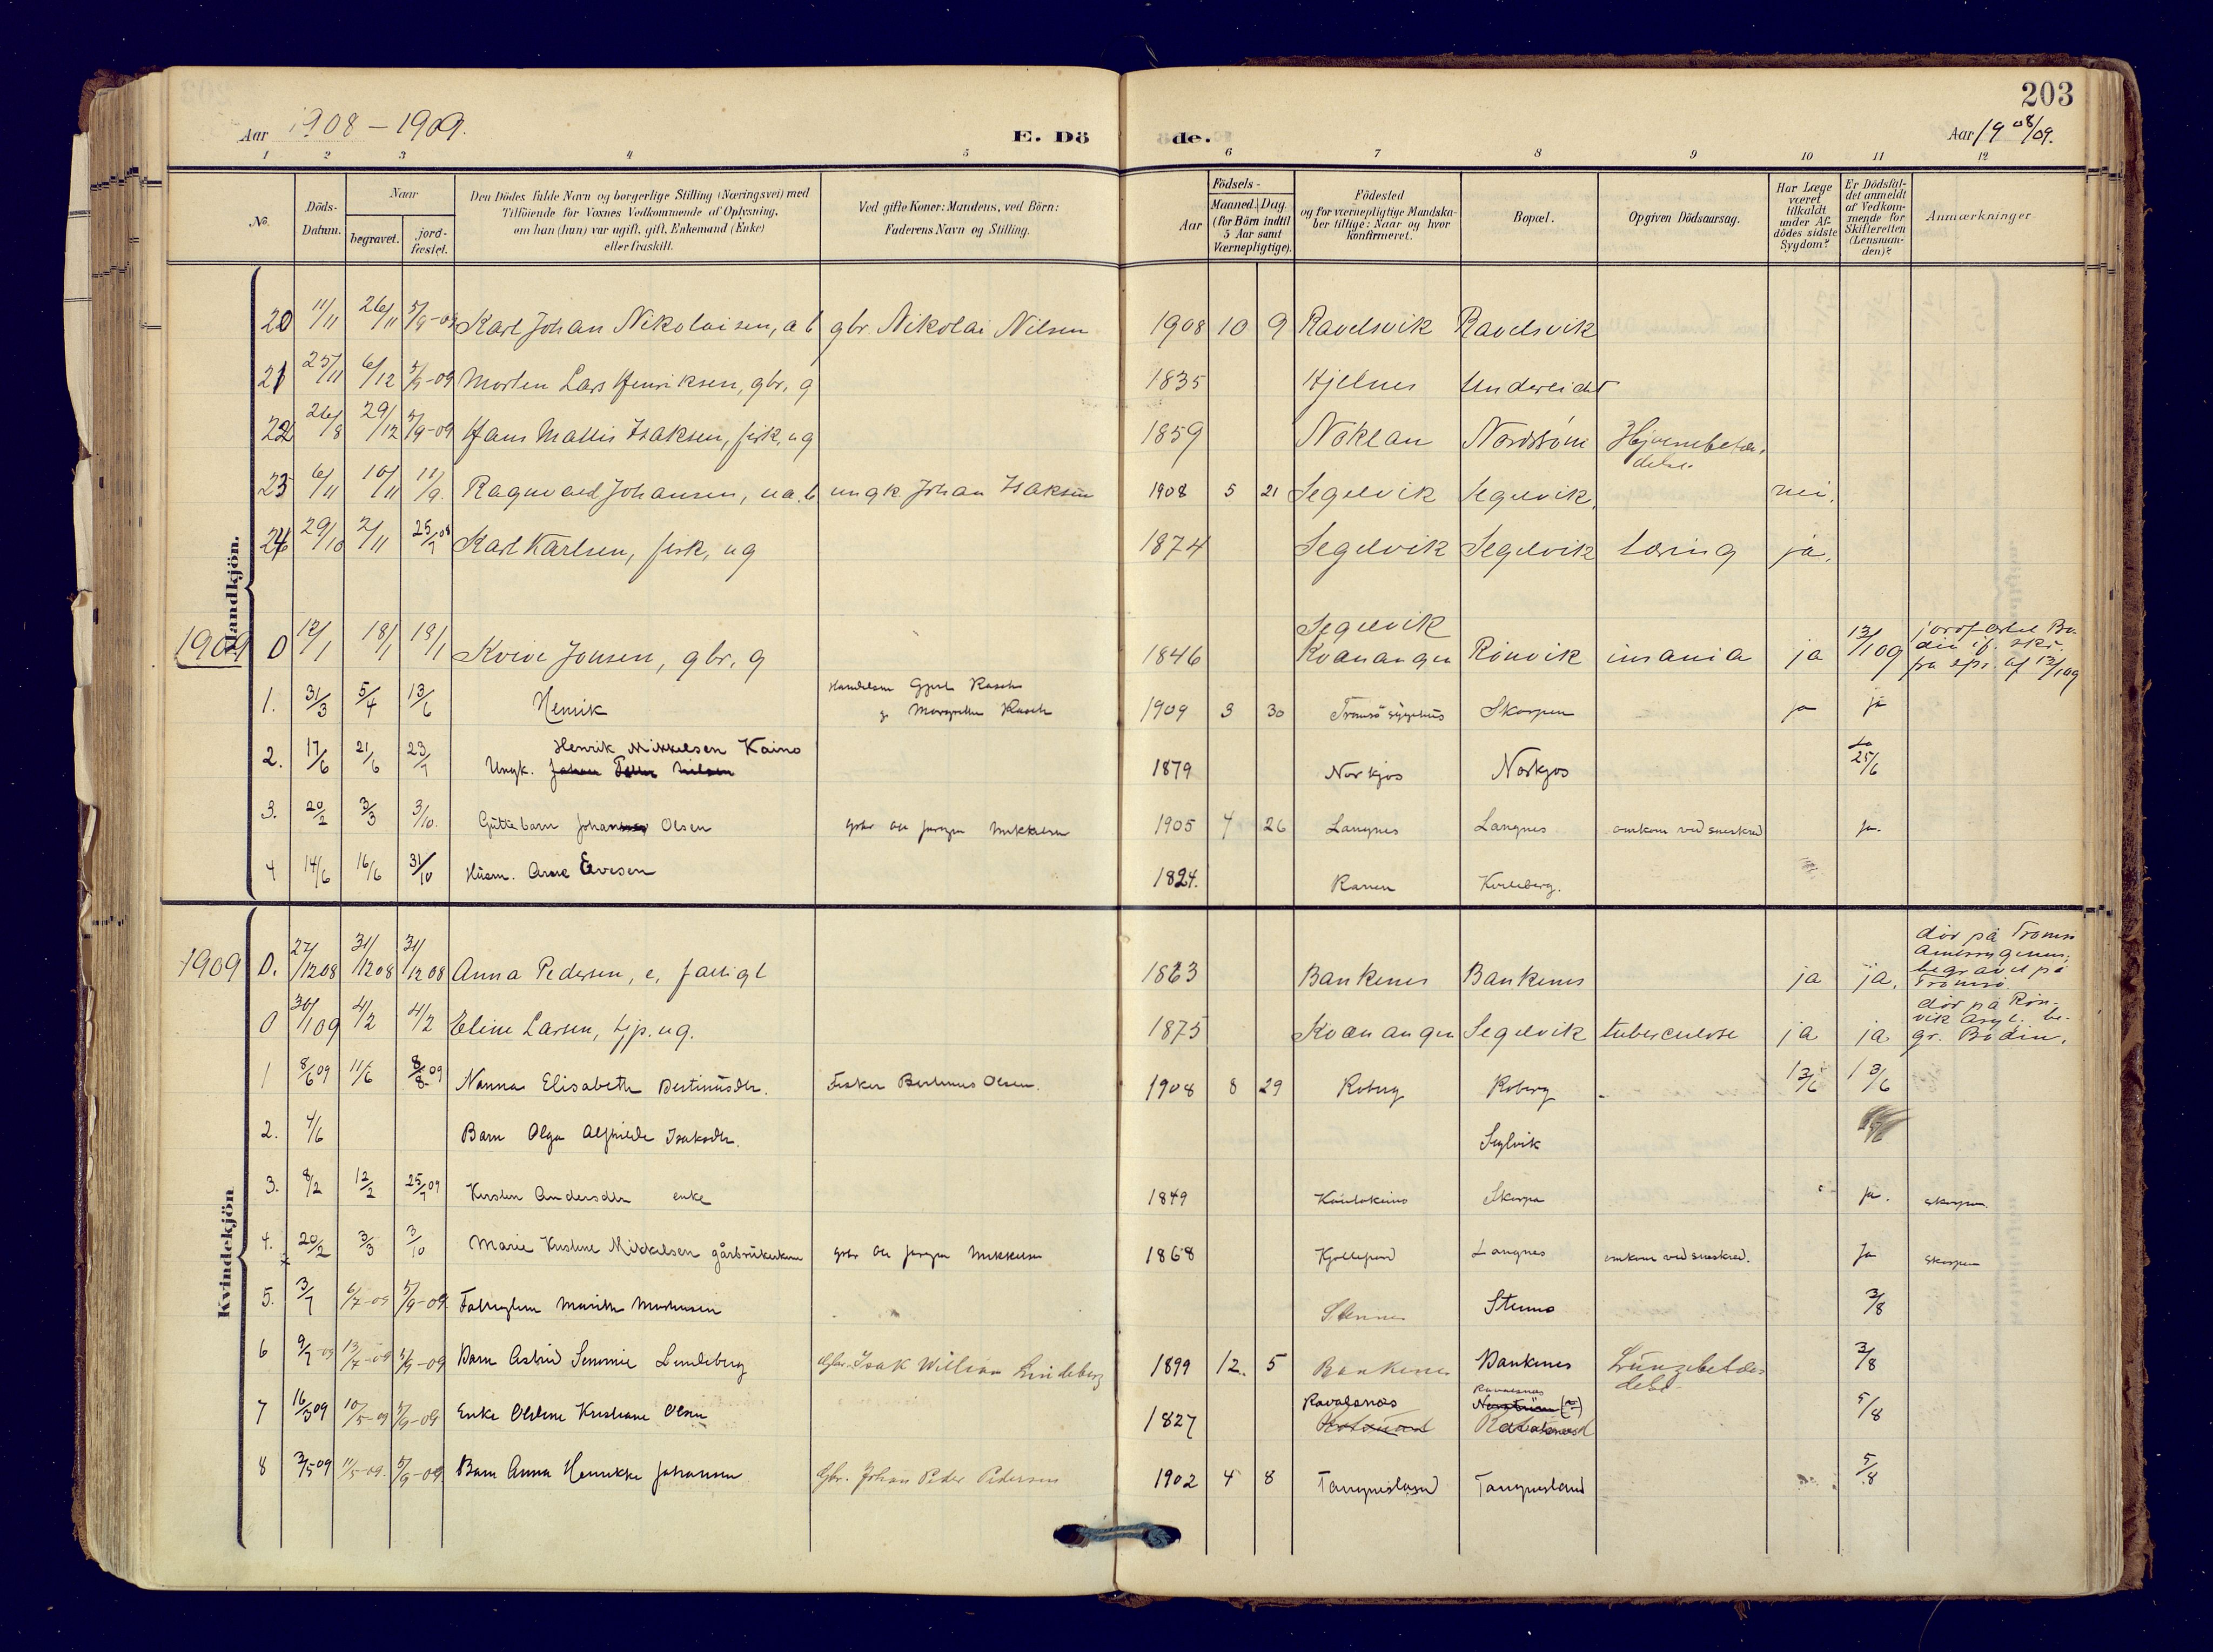 203
Aar 1908 - 1909.
E. Dö
de.
Aar 19 08/09.
1 2 3 4 5 6 7 8 9 10 11 12
No.
Döds-
Datum.
Naar
begravet.
jord-
fæstet.
Den Dödes fulde Navn og borgerlige Stilling (Næringsvei) med
Tilföiende for Voxnes Vedkommende af Oplysning,
om han (hun) var ugift, gift, Enkemand (Enke)
eller fraskilt.
Ved gifte Koner: Mandens, ved Börn:
Faderens Navn og Stilling.
Födsels-
Aar
Maaned. Dag.
(for Börn indtil
5 Aar samt
Værnepligtige).
Födested
og for værnepligtige Mandska-
ber tillige: Naar og hvor
konfirmeret.
Bopæl.
Opgiven Dödsaarsag.
Har Læge
været
tilkaldt
under Af-
dödes sidste
Sygdom?
Er Dödsfal-
det anmeldt
af Vedkom-
mende for
Skifteretten
(Lensman-
den)?
Anmærkninger
Mandkjön.
20 11/11 26/11 5/9-09 Karl Johan Nikolaisen, a b gbr. Nikolai Nilsen 1908 10 9 Ravelsvik Ravelsvik
21 25/11 6/12 5/9-09 Morten Lars Henriksen, gbr, g 1835 Hjelnes Undereidet
22 26/8 29/12 5/9-09 Hans Mattis Isaksen, fisk, ug 1859 Noklan Nordstrøm Hjernebetæn-
delse.
23 6/11 10/11 11/9. Ragnvald Johansen, ua. b ungk. Johan Isaksen 1908 5 21 Segelvik Segelvik. nei.
24 29/10 2/11 25/7 08 Karl Karlsen, fisk, ug 1874 Segelvik Segelvik tæring ja.
1909 0 12/1 18/1 18/1 Jonsen, gbr, g 1846 Segelvik
Kvænangen Rönvik insania ja 13/1 09 jordfæstet Bo-
din if. skr.
fra spr. af 13/1 09
1. 31/3 5/4 13/6 Henrik Handelsm Gjert Rasch
g. Margrethe Rasch 1909 3 30 Tromsö sygehus Skorpen ja ja
2. 17/6 21/6 23/7 Henrik Mikkelsen Kaino
Ungk. 1879 Norkjos Norkjos 25/6
3. 20/2 3/3 3/10. Guttebarn Johan Olsen gbr Ole Jørgen Mikkelsen 1905 4 26 Langnes Langnes omkom ved sneskred ja.
4 14/6 16/6 31/10 Husm. Arne Eversen 1824. Ranen
Kvindekjön
1909 0. 27/12 08 31/12 08 31/12 08 Anna Pedersen, e, fattigl 1863 Bankenes Bankenes ja ja. dör på Tromsö
Amtssygehus,
begravet på
Tromsö.
0 30/1 09 4/2 4/2 Eline Larsen, tjp. ug. 1875 Kvænangen Segelvik tuberculose ja ja dör på Rön-
vik Asyl. be-
gr. Bodin.
1 8/6 09 11/6 8/8 09 Nanna Elisabeth Bertinusdtr. Fisker Bertinus Olsen. 1908 8 29 Roberg Roberg 13/6 13/6
2. 4/6 Barn Olga Alfhilde Isaksdtr. Seglvik
3. 8/2 12/2 25/7 09 Kirsten Andersdtr enke 1849 Kautokeino Skorpa ja. Skorpen.
4. 20/2 3/3 3/10 Marie Kristine Mikkelsen gårbrukerkone gbr Ole Jørgen Mikkelsen 1868 Kjøllefjord Langnes omkom ved sneskred. Ja Skorpen
5. 3/7 6/7-09 5/9-09 Fattiglem Marith Mortensen Stennes Stennes 3/8
6 9/7-09 13/7-09 5/9-09 Barn Astrid Lindeberg Gbr. Isak William Lindeberg 1899 12. 5 Bankenes Bankenes Lungebetæn-
delse 3/8
7 16/3 09 10/5-09 5/9-09 Enke Oldine Kristiane Olsen 1827 Ravelsnes Ravelsnes 5/8
8 3/5 09 11/5-09. 5/9-09 Barn Anna Henrikke Johansen Gbr. Johan Peder Pedersen 1902 4 8 Tangnesland Tangnesland 5/8